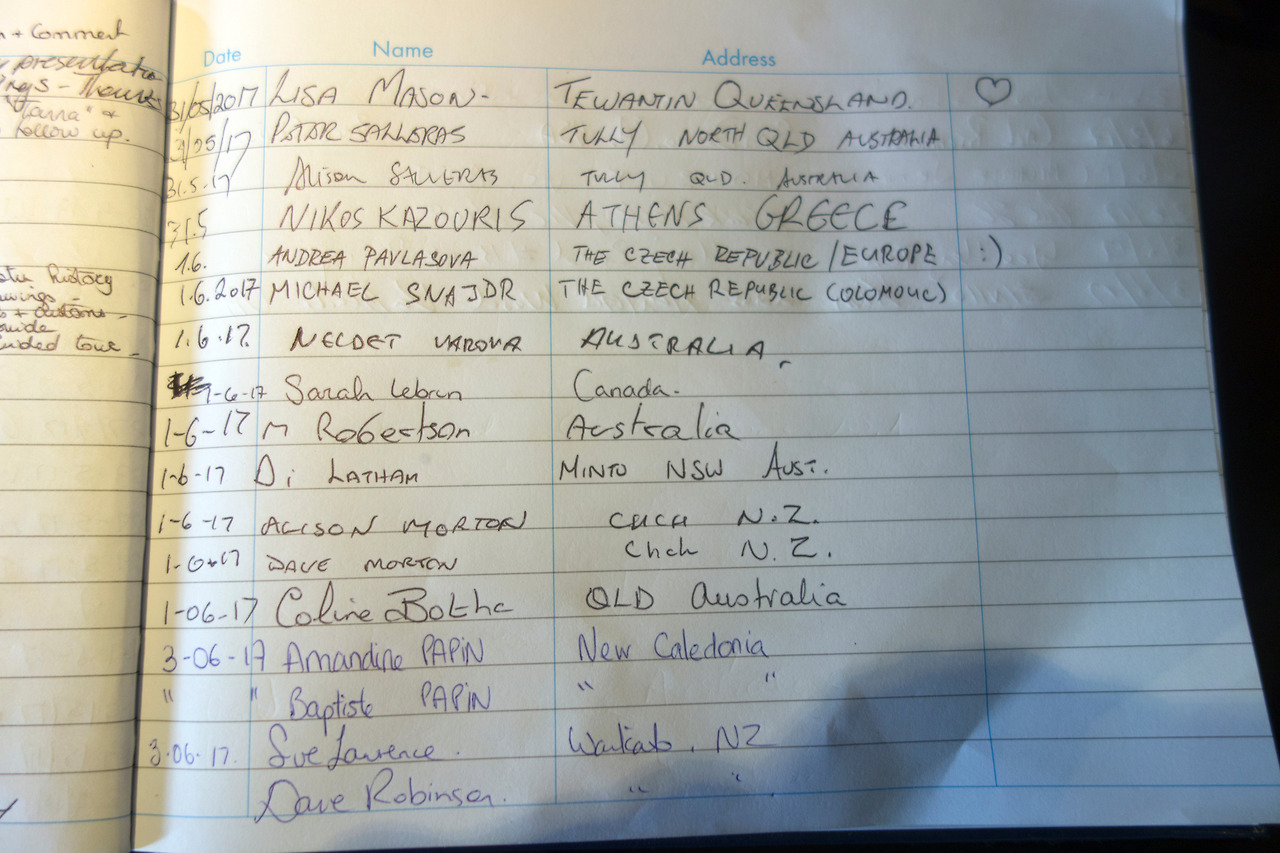 + Comment
presentatio
ngs - Thanks
"Tanna" &
follow up.
history
- 
+ customs -
guide
guided tour -
Date Name Address
31/05/2017 LISA MASON- TEWANTIN QUEENSLAND. ♡
31/05/17 PETER SALLERAS TULLY NORTH QLD AUSTRALIA
31.5.17 Alison SALLERAS TULLY QLD. AUSTRALIA
31.5 NIKOS KAZOURIS ATHENS GREECE
1.6. ANDREA PAVLASOVA THE CZECH REPUBLIC /EUROPE :)
1.6.2017 MICHAEL SNAJDR THE CZECH REPUBLIC (OLOMOUC)
1.6.17. NECDET VAROVA AUSTRALIA.
1-6-17 Sarah Lebrun Canada.
1-6-17 M Robertson Australia
1-6-17 Di LATHAM MINTO NSW AUST.
1-6-17 ALISON MORTON CHCH N.Z.
1-6-17 DAVE MORTON Chch N.Z.
1-06-17 Coline Botha QLD Australia
3-06-17 Amandine PAPIN New Caledonia
" " Baptiste PAPIN " "
3.06.17. Sue Lawrence. Waikato. NZ
Dave Robinson. " "